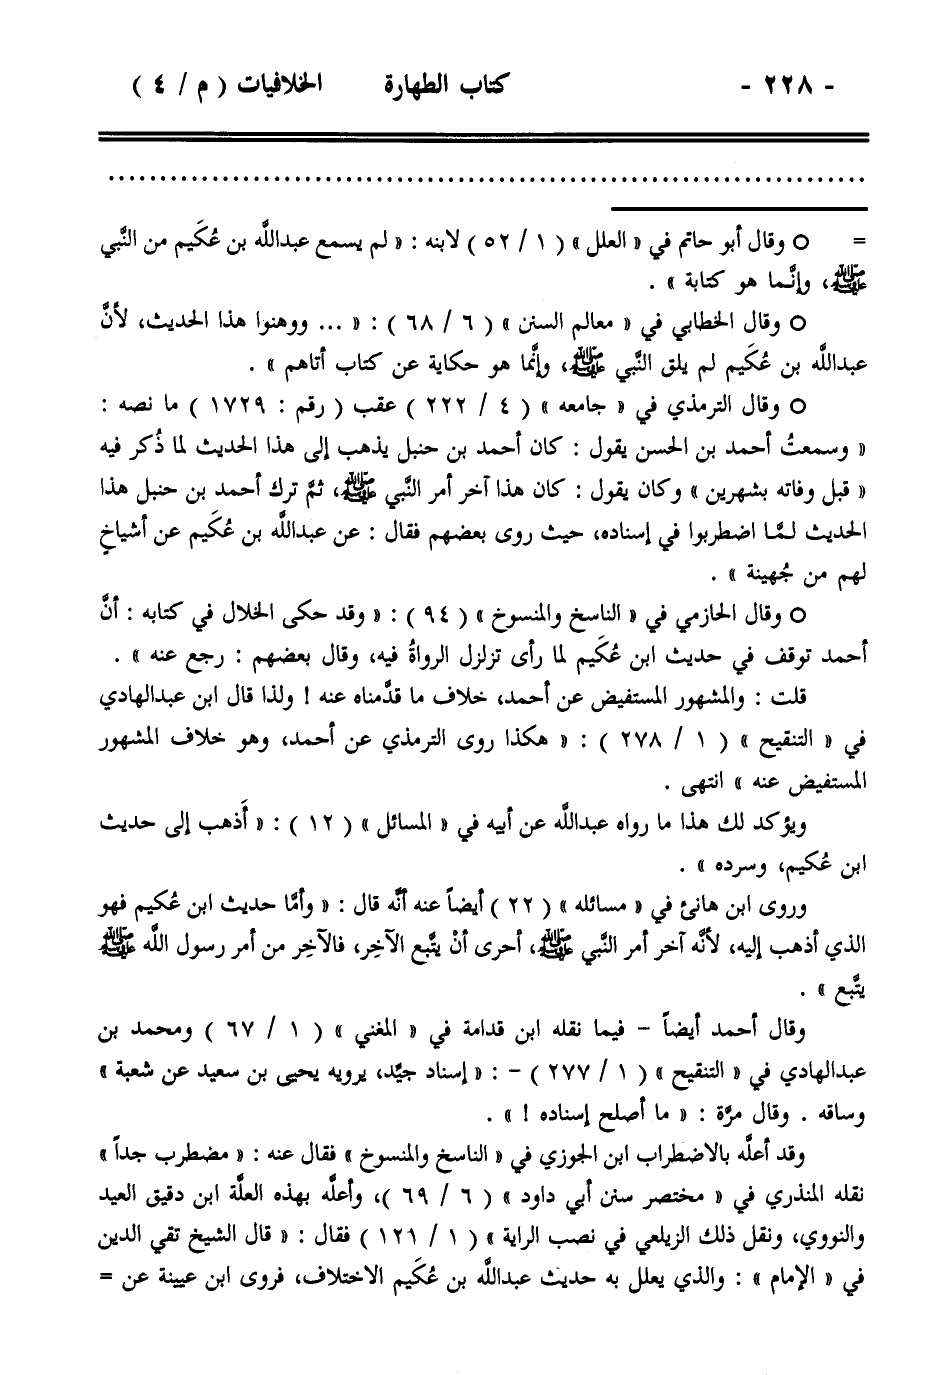 - ٢٢٨ - كتاب الطهارة الخلافيات ( م / ٤ )
......................................................................
= ○ وقال أبو حاتم في « العلل » ( ١ / ٥٢ ) لابنه : « لم يسمع عبدالله بن عُكَيم من النَّبي
ﷺ، وإنَّما هو كتابة » .
○ وقال الخطابي في « معالم السنن » ( ٦ / ٦٨ ) : « ... ووهنوا هذا الحديث، لأنَّ
عبداللَّه بن عُكَيم لم يلق النَّبي ﷺ، وإنَّما هو حكاية عن كتاب أتاهم » .
○ وقال الترمذي في « جامعه » ( ٤ / ٢٢٢ ) عقب ( رقم : ١٧٢٩ ) ما نصه :
« وسمعتُ أحمد بن الحسن يقول : كان أحمد بن حنبل يذهب إلى هذا الحديث لما ذُكر فيه
« قبل وفاته بشهرين » وكان يقول : كان هذا آخر أمر النَّبي ﷺ، ثمَّ ترك أحمد بن حنبل هذا
الحديث لـمَّـا اضطربوا في إسناده، حيث روى بعضهم فقال : عن عبداللَّه بن عُكَيم عن أشياخٍ
لهم من جُهينة » .
○ وقال الحازمي في « الناسخ والمنسوخ » ( ٩٤ ) : « وقد حكى الخلال في كتابه : أنَّ
أحمد توقف في حديث ابن عُكَيم لما رأى تزلزل الرواةُ فيه، وقال بعضهم : رجع عنه » .
قلت : والمشهور المستفيض عن أحمد، خلاف ما قدَّمناه عنه ! ولذا قال ابن عبدالهادي
في « التنقيح » ( ١ / ٢٧٨ ) : « هكذا روى الترمذي عن أحمد، وهو خلاف المشهور
المستفيض عنه » انتهى .
ويؤكد لك هذا ما رواه عبداللَّه عن أبيه في « المسائل » ( ١٢ ) : « أَذهب إلى حديث
ابن عُكيم، وسرده » .
وروى ابن هانئ في « مسائله » ( ٢٢ ) أيضاً عنه أنَّه قال : « وأمَّا حديث ابن عُكيم فهو
الذي أذهب إليه، لأنَّه آخر أمر النَّبي ﷺ، أحرى أنْ يتَّبع الآخِر، فالآخِر من أمر رسول اللَّه ﷺ
يتَّبع » .
وقال أحمد أيضاً - فيما نقله ابن قدامة في « المغني » ( ١ / ٦٧ ) ومحمد بن
عبدالهادي في « التنقيح » ( ١ / ٢٧٧ ) - : « إسناد جيِّد، يرويه يحيى بن سعيد عن شعبة »
وساقه . وقال مرَّة : « ما أصلح إسناده ! » .
وقد أعلَّه بالاضطراب ابن الجوزي في « الناسخ والمنسوخ » فقال عنه : « مضطرب جداً »
نقله المنذري في « مختصر سنن أبي داود » ( ٦ / ٦٩ )، وأعلَّه بهذه العلَّة ابن دقيق العيد
والنووي، ونقل ذلك الزيلعي في نصب الراية » ( ١ / ١٢١ ) فقال : « قال الشيخ تقي الدين
في « الإمام » : والذي يعلل به حديث عبداللَّه بن عُكَيم الاختلاف، فروى ابن عيينة عن =